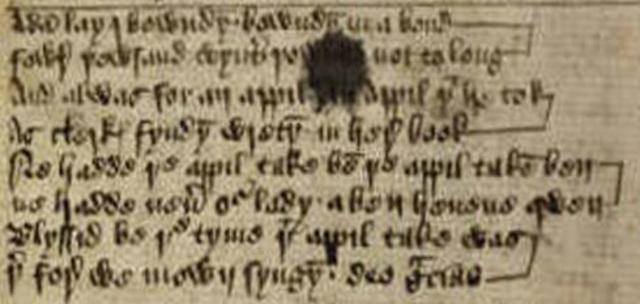 Adā lay I bowndyn · bowndyn in a bond
fowr þowsand wynter not to long
And al was for an appil an appil þt he tok
As clerkis fyndyn wretyn in here book
Ne hadde þe appil take ben þe appil taken ben
ne hadde neuer our lady · a ben heuene qwen
Blyssid be þe tyme þt appil take was
þer fore we mown syngyn · deo gracias